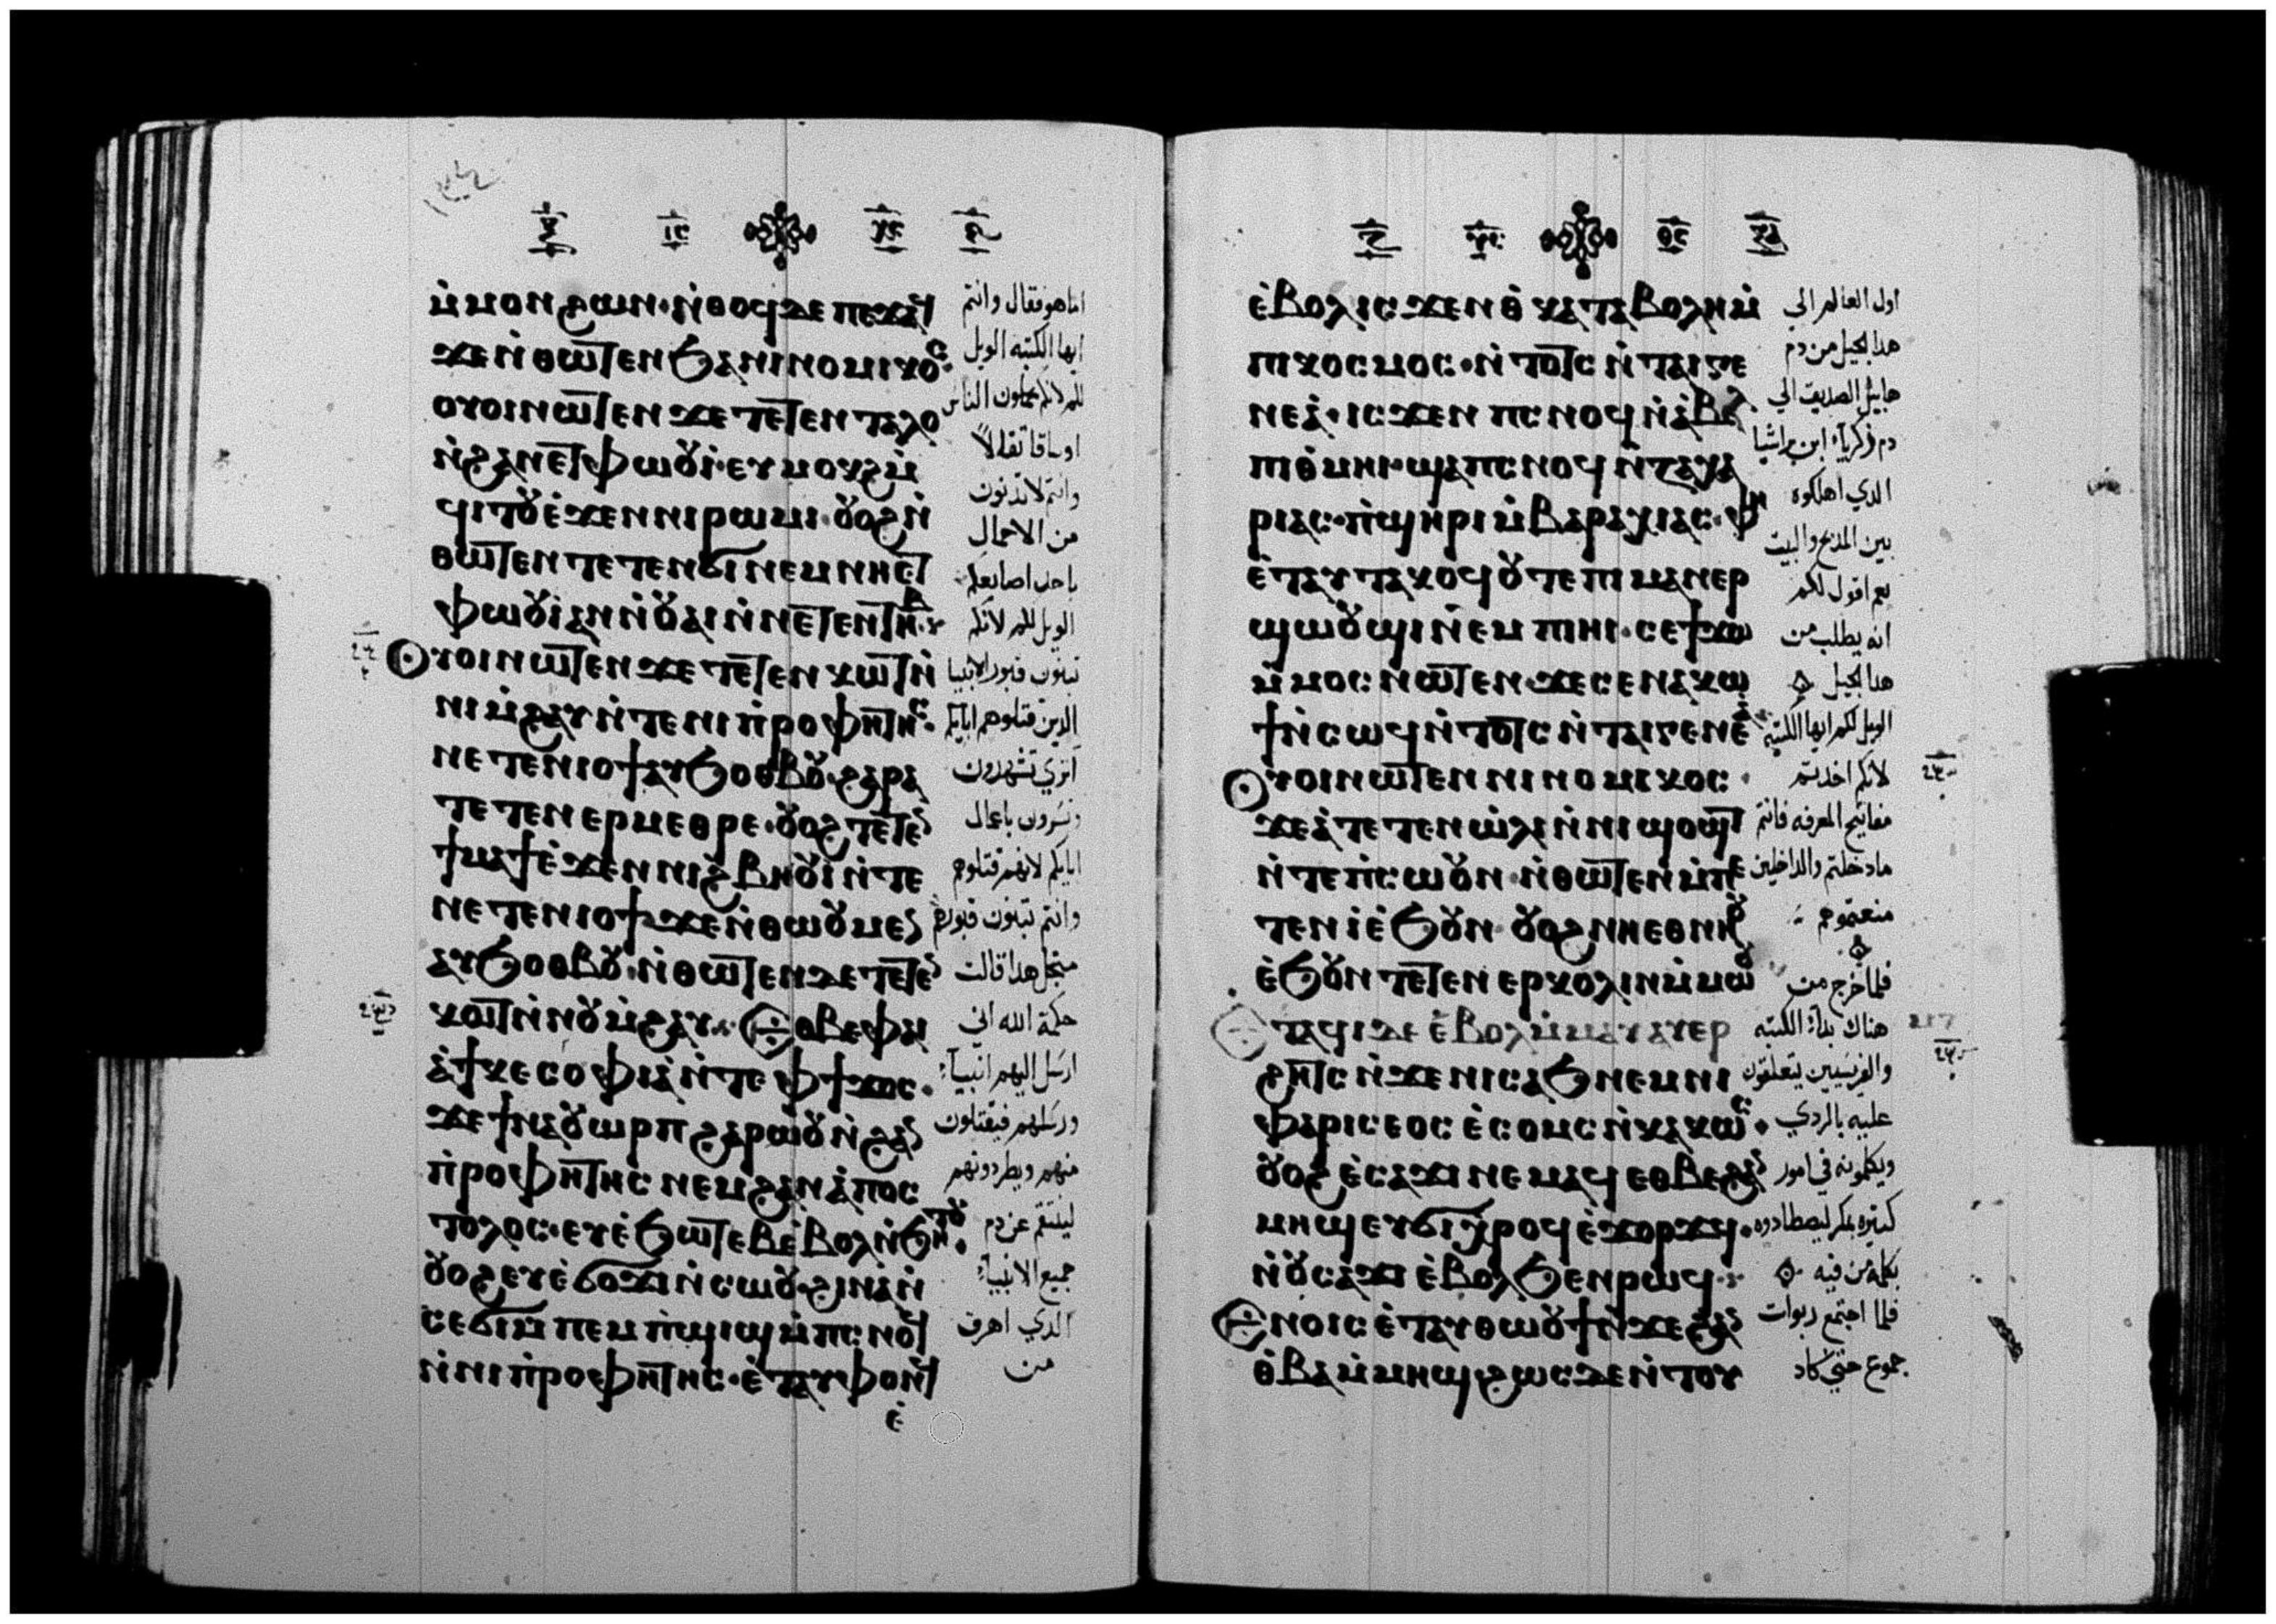 ⲙ̀ⲙⲟⲛ ϩⲱⲛ· ⲛ̀ⲑⲟϥ ⲇⲉ ⲡⲉϫⲁϥ
ϫⲉ ⲛ̀ⲑⲱⲧⲉⲛ ϧⲁ ⲛⲓⲛⲟⲙⲓⲕⲟⲥ·
ⲟⲩⲟⲓ ⲛⲱⲧⲉⲛ ϫⲉ ⲧⲉⲧⲉⲛ ⲧⲁⲗⲟ
ⲛ̀ϩⲁⲛⲉⲧⲫⲱⲟⲩⲓ̀· ⲉⲩⲙⲟⲕϩ ⲙ̀
ϥⲓⲧⲟⲩ ⲉ̀ϫⲉⲛ ⲛⲓⲣⲱⲙⲓ· ⲟⲩⲟϩ ⲛ̀
ⲑⲱⲧⲉⲛ ⲧⲉⲧⲉⲛϭⲓ ⲛⲉⲙ ⲛⲏⲉⲧ
ⲫⲱⲟⲩⲓ̀ ⲁⲛ ⲛ̀ⲟⲩⲁⲓ ⲛ̀ⲛⲉⲧⲉⲛⲧⲏⲃ·
ⲟⲩⲟⲓ ⲛⲱⲧⲉⲛ ϫⲉ ⲧⲉⲧⲉⲛ ⲕⲱⲧ ⲛ̀
ⲛⲓⲙ̀ϩⲁⲩ ⲛ̀ⲧⲉ ⲛⲓⲡ̀ⲣⲟⲫⲏⲧⲏⲥ·
ⲛⲉⲧⲉⲛⲓⲟϯ ⲁⲩϧⲟⲑⲃⲟⲩ· ϩⲁⲣⲁ
ⲧⲉⲧⲉⲛⲉⲣⲙⲉⲑⲣⲉ· ⲟⲩⲟϩ ⲧⲉⲧⲉⲛ
ϯⲙⲁϯ ⲉ̀ϫⲉⲛ ⲛⲓϩ̀ⲃⲏⲟⲩⲓ̀ ⲛ̀ⲧⲉ
ⲛⲉⲧⲉⲛⲓⲟϯ ϫⲉ ⲛ̀ⲑⲱⲟⲩ ⲙⲉⲛ
ⲁⲩϧⲟⲑⲃⲟⲩ· ⲛ̀ⲑⲱⲧⲉⲛ ⲇⲉ ⲧⲉⲧⲉⲛ
ⲕⲱⲧ ⲛ̀ⲛⲟⲩⲙ̀ϩⲁⲩ· ⲉⲑⲃⲉ ⲫⲁⲓ
ⲁ̀ ϯⲕⲉⲥⲟⲫⲓⲁ̀ ⲛ̀ⲧⲉ ⲫϯ ϫⲟⲥ·
ϫⲉ ϯⲛⲁⲟⲩⲱⲣⲡ ϩⲁⲣⲱⲟⲩ ⲛ̀ϩⲁⲛ
ⲡ̀ⲣⲟⲫⲏⲧⲏⲥ ⲛⲉⲙ ϩⲁⲛⲁ̀ⲡⲟⲥ
ⲧⲟⲗⲟⲥ· ⲉⲩⲉ̀ϧⲱⲧⲉⲃ ⲉ̀ⲃⲟⲗ ⲛ̀ϧⲏⲧⲟⲩ·
ⲟⲩⲟϩ ⲉⲩⲉ̀ϭⲟϫⲓ ⲛ̀ⲥⲱⲟⲩ· ϩⲓⲛⲁ ⲛ̀
ⲥⲉϭⲓⲙ̀ ⲡⲉⲙⲡ̀ϣⲓϣ ⲙ̀ⲡⲥⲛⲟϥ
ⲛ̀ⲛⲓⲡ̀ⲣⲟⲫⲏⲧⲏⲥ· ⲉ̀ⲧⲁⲩⲫⲟⲛϥ
ⲉ̀
اما هو فقال وانتم
ايها الكتبه الويل
لكم لانكم تحملون الناس
اوساقا ثقالاً
وانتم لا تدنون
من الاحمال
باحد اصابعكم
الويل لكم لانكم
تبنون قبور الانبيا
الدين قتلوهم اباوكم
اتري تشهدون
وتسرون باعمال
ابايكم لانهم قتلوهم
وانتم تبنون قبورهم
من اجل هدا قالت
حكمة الله اني
ارسل اليهم انبياء
ورسلهم فيقتلون
منهم ويطردونهم
لينتقم عن دم
جميع الانبياء
الدي اهرق
من
ⲉ̀ⲃⲟⲗ ⲓⲥϫⲉⲛ ⲑ̀ⲕⲁⲧⲁⲃⲟⲗⲏ ⲙ̀
ⲡⲓⲕⲟⲥⲙⲟⲥ· ⲛ̀ⲧⲟⲧⲥ ⲛ̀ⲧⲁⲓⲅⲉ
ⲛⲉⲁ̀· ⲓⲥϫⲉⲛ ⲡⲥⲛⲟϥ ⲛ̀ⲁⲃⲉⲗ
ⲡⲓⲑ̀ⲙⲏⲓ· ϣⲁ ⲡⲥⲛⲟϥ ⲛ̀ⲍⲁⲭⲁ
ⲣⲓⲁⲥ· ⲡ̀ϣⲏⲣⲓ ⲙ̀ⲃⲁⲣⲁⲭⲓⲁⲥ· ⲫⲏ
ⲉ̀ⲧⲁⲩⲧⲁⲕⲟϥ ⲟⲩⲧⲉ ⲡⲓⲙⲁⲛⲉⲣ
ϣⲱⲟⲩϣⲓ ⲛⲉⲙ ⲡⲓⲏⲓ· ⲥⲉ ϯϫⲱ
ⲙ̀ⲙⲟⲥ ⲛⲱⲧⲉⲛ· ϫⲉ ⲥⲉⲛⲁⲕⲱ
ϯ ⲛ̀ⲥⲱϥ ⲛ̀ⲧⲟⲧⲥ ⲛ̀ⲧⲁⲓⲅⲉⲛⲉⲁ̀
ⲟⲩⲟⲓ ⲛⲱⲧⲉⲛ ⲛⲓⲛⲟⲙⲓⲕⲟⲥ·
ϫⲉ ⲁ̀ⲧⲉⲧⲉⲛⲱ̀ⲗⲓ ⲛ̀ⲛⲓϣⲟϣⲧ
ⲛ̀ⲧⲉ ⲡ̀ⲥⲱⲟⲩⲛ· ⲛ̀ⲑⲱⲧⲉⲛ ⲙ̀ⲡⲉ
ⲧⲉⲛⲓ̀ ⲉ̀ϧⲟⲩⲛ· ⲟⲩⲟϩ ⲛⲏⲉⲑⲛⲏⲟⲩ
ⲉ̀ϧⲟⲩⲛ ⲧⲉⲧⲉⲛⲉⲣⲕⲟⲗⲓⲛ ⲙ̀ⲙⲱⲟⲩ
ⲉⲧⲁϥⲓ ⲇⲉ ⲉ̀ⲃⲟⲗ ⲙ̀ⲙⲁⲩ ⲁⲩⲉⲣ
ϩⲏⲧⲥ ⲛ̀ϫⲉ ⲛⲓⲥⲁϧ ⲛⲉⲙ ⲛⲓ
ⲫⲁⲣⲓⲥⲉⲟⲥ ⲉ̀ⲥⲟⲙⲥ ⲛ̀ⲕⲁⲕⲱⲥ·
ⲟⲩⲟϩ ⲉ̀ⲥⲁϫⲓ ⲛⲉⲙⲁϥ ⲉⲑⲃⲉ ϩⲁⲛ
ⲙⲏϣ ⲉⲩϭⲓⲭ̀ⲣⲟϥ ⲉ̀ϫⲟⲣϫϥ·
ⲛ̀ⲟⲩⲥⲁϫⲓ ⲉ̀ⲃⲟⲗ ϧⲉⲛ ⲣⲱϥ·
ϧⲉⲛ ⲟⲓⲥ ⲉ̀ⲧⲁⲩⲑⲱⲟⲩϯ ⲛ̀ϫⲉ ϩⲁⲛ
ⲑ̀ⲃⲁ ⲙ̀ⲙⲏϣ ϩⲱⲥⲇⲉ ⲛ̀ⲧⲟⲩ
اول العالم الي
هدا الجيل من دم
هابيل الصديق الي
دم زكرياء ابن براشيا
الدي اهلكوه
بين المدبح والبيت
نعم اقول لكم
انه يطلب من
هدا الجيل
الويل لكم ايها الكتبه
لانكم اخدتم
مفاتيح المعرفه فانتم
ما دخلتم والداخلين
منعتموهم
فلما خرج من
هناك بداء الكتبه
والفريسيين يتعلقون
عليه بالردي
ويكلمونه في امور
كثيره بمكر ليصطادوه
بكلمة من فيه
فلما اجتمع ربوات
جموع حتي كاد